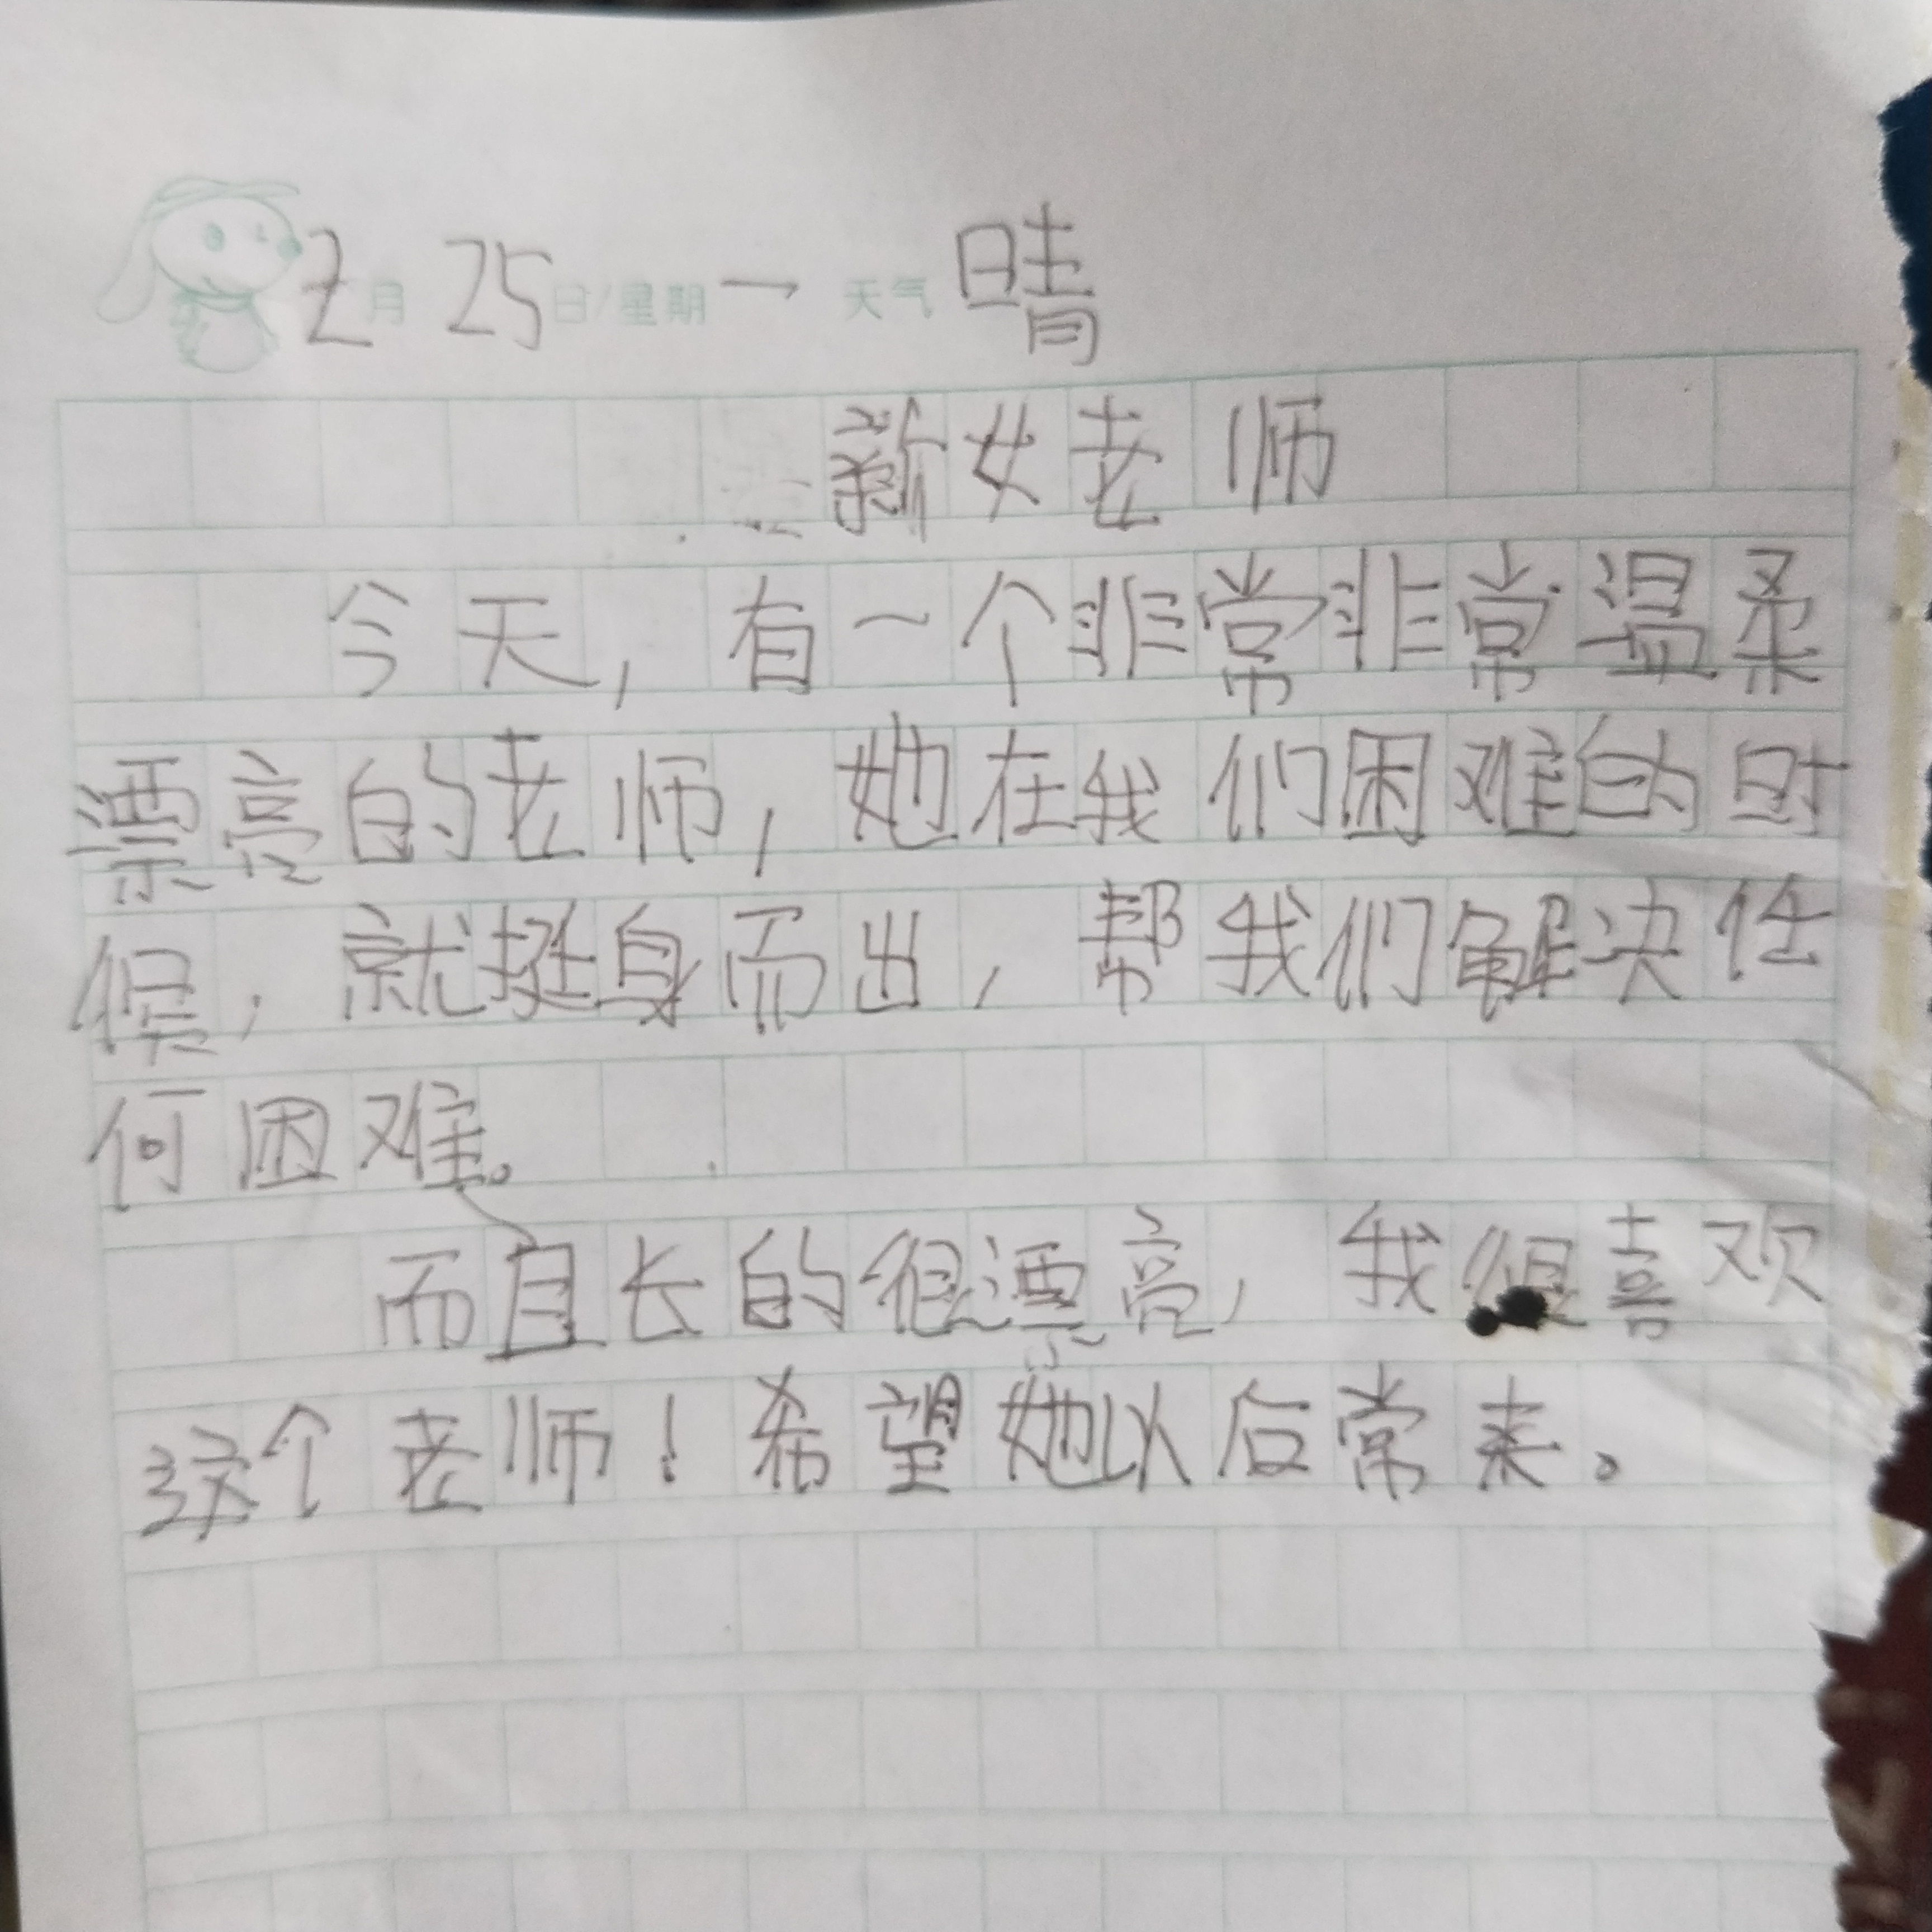 2月25日/星期一 天气晴
新女老师
今天，有一个非常非常温柔
漂亮的老师，她在我们困难的时
候，就挺身而出，帮我们解决任
何困难。
而且长的很漂亮，我很喜欢
这个老师！希望她以后常来。